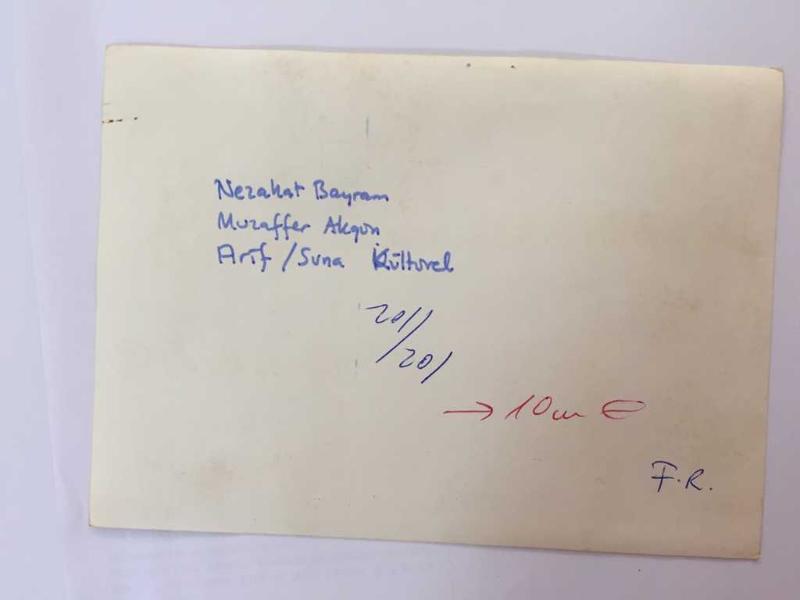 Nezahat Bayram
Muzaffer Akgün
Arif / Suna Kültürel
201/
/201
→ 10 cm
F.R.